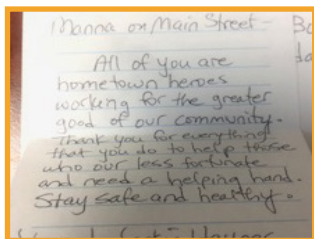 Manna on Main Street-
All of you are
hometown heroes
working for the greater
good of our community.
Thank you for everything
that you do to help those
who our less fortunate
and need a helping hand.
Stay safe and healthy.